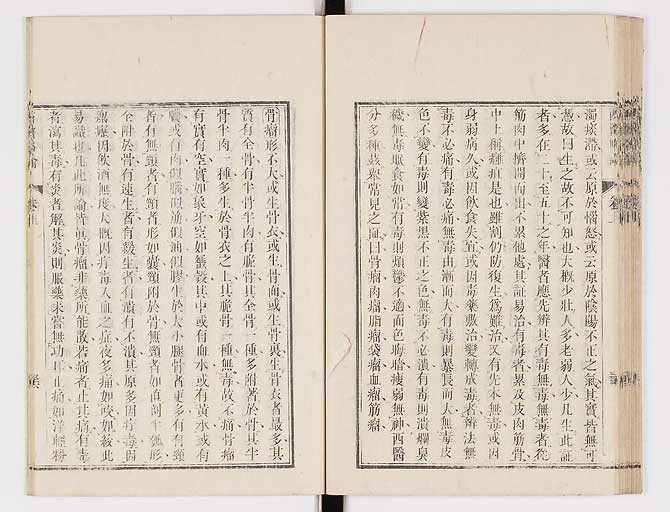 濁痰滯或云原於惱怒或云原於陰陽不正之氣其實皆無可
憑故曰生之故不可知也大概少壯人多老弱人少凡生此証
者多在二十至五十之年醫者應先辨其有毒無毒無毒者從
筋肉中擠開而出不累他處其証易治有毒者累及皮肉筋骨
中上稱難痊是也雖割仍防復生爲難治又有先本無毒或因
身弱病久或因飲食失宜或因毒藥敷治變轉成毒者辨法無
毒不必痛有毒必痛無毒由漸而大有毒則暴長而大無毒皮
色不變有毒則變紫黑不正之色無毒不必潰有毒則潰爛臭
穢無毒眠食如常有毒則煩鬱不適面色晦暗瘦弱無神西醫
分多種兹舉常見之証曰骨瘤肉瘤脂瘤袋瘤血瘤筋瘤
骨瘤形不大或生骨衣或生骨面或生骨裏生骨衣者最多其
質有全骨有半骨半肉有脆骨其全骨一種多附著於骨其半
骨半肉一種多生於骨衣之上其脆骨一種無毒故不痛骨瘤
有實有空實如象牙空如蟹殼其中或有血水或有黃水或有
膿或有肉似腦似筋似油似膠生於大小腿骨者更多有有頸
者有無頸者有頸者形如囊頸附於骨無頸者如直剖半瓠形
全附於骨有速生者有緩生者有潰有不潰其原多因疔毒因
瘰癧因飲酒無度大概因疔毒入血之症夜多痛如咬如絞此
易識也凡此所論皆真骨瘤非藥所能散若痛者止其痛有毒
者瀉其毒有炎者解其炎則服藥未嘗無功耳止痛如洋輕粉